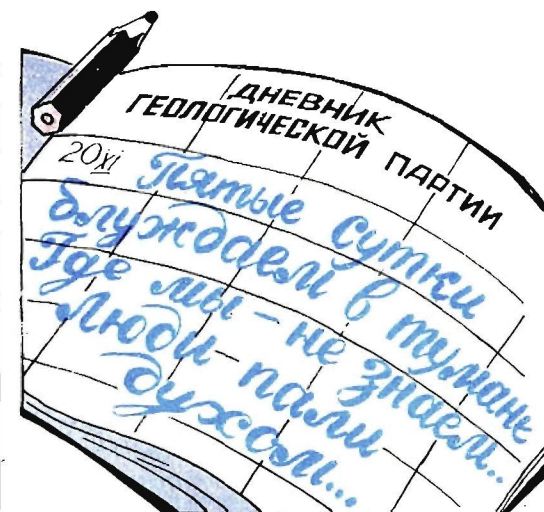 ДНЕВНИК
ГЕОЛОГИЧЕСКОЙ ПАРТИИ
20 XI Пятые сутки
блуждаем в тумане
Где мы - не знаем..
Люди пали
духом...